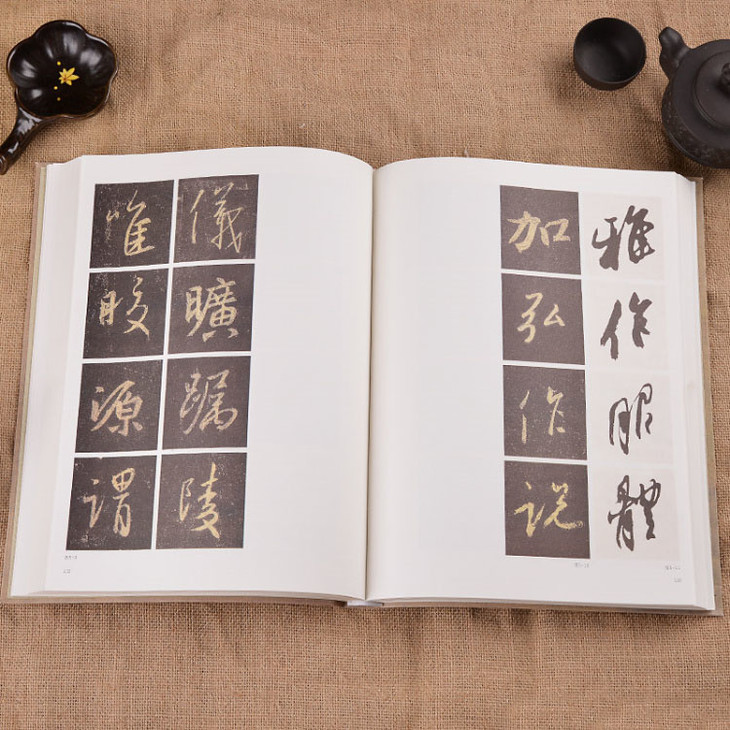 雅作體
加弘作説
儀曠陵
唯源謂